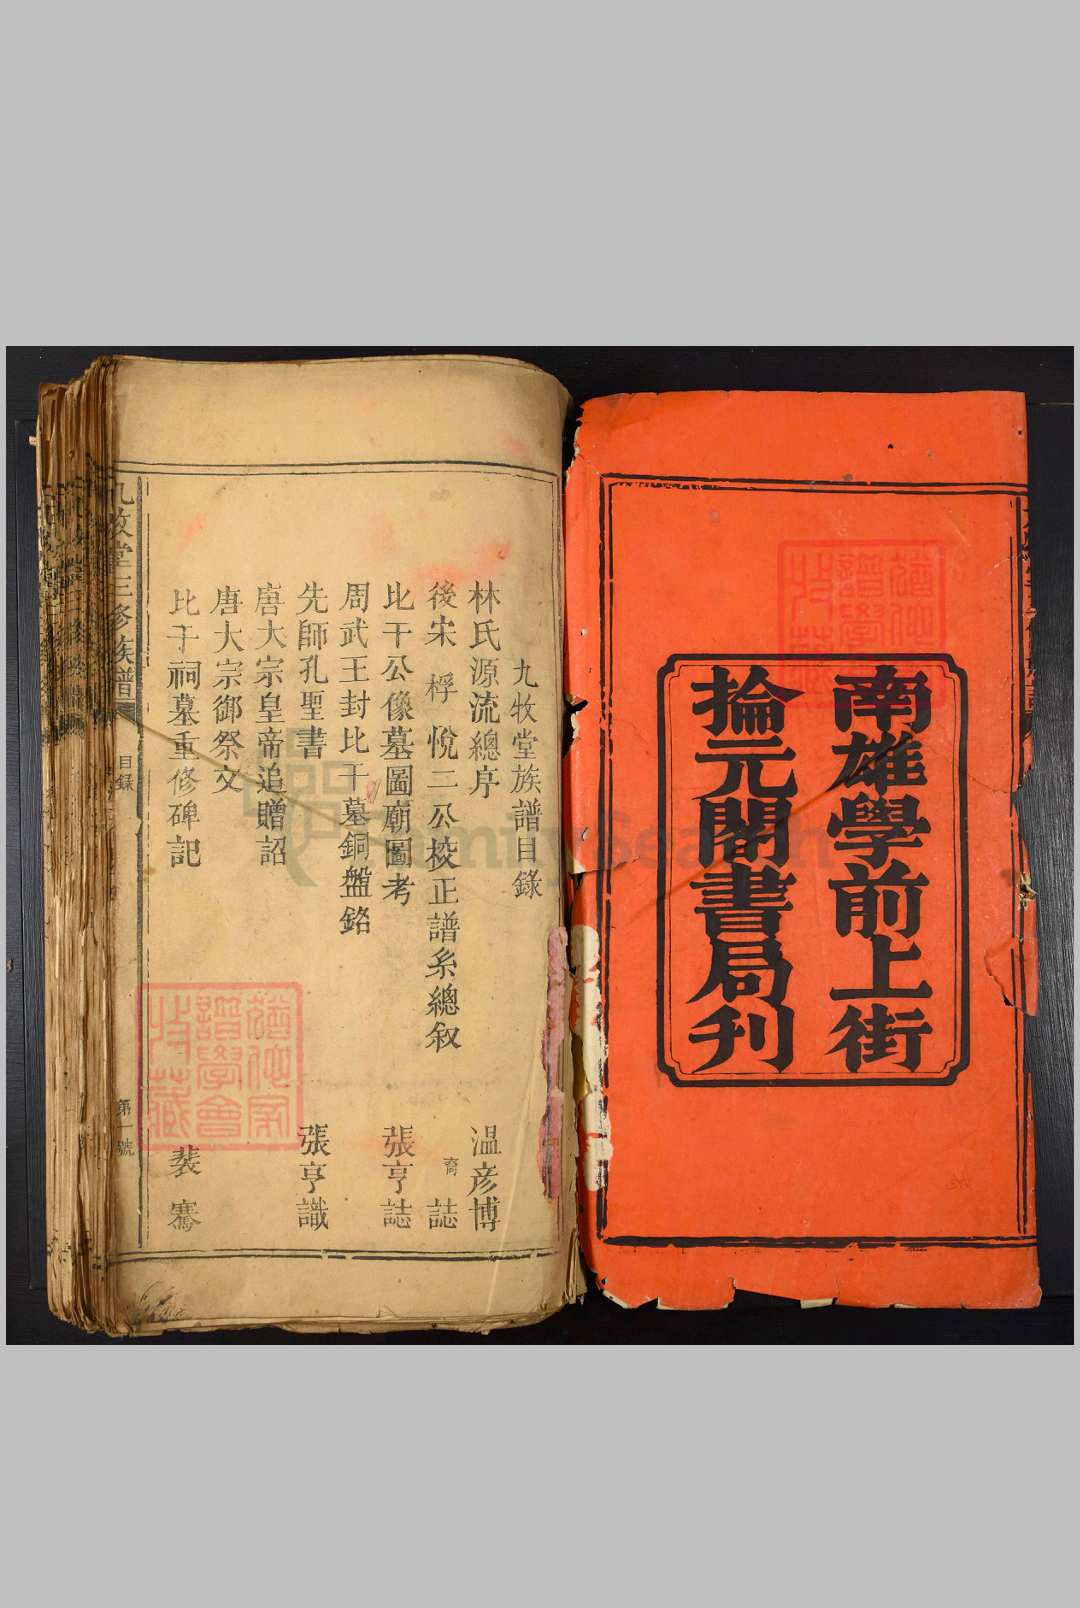 南雄學前上街
掄元閣書局刊
九牧堂族譜目錄
林氏源流總序 温彦博
後宋 桴 悅二公校正譜系總叙 裔 誌
比干公像墓圖廟圖考 張亨誌
周武王封比干墓銅盤銘
先師孔聖書 張亨識
唐太宗皇帝追贈詔
唐太宗御祭文
比干祠墓重修碑記 裴騫
九牧堂三修族譜 目錄 第一號
FamilySearch